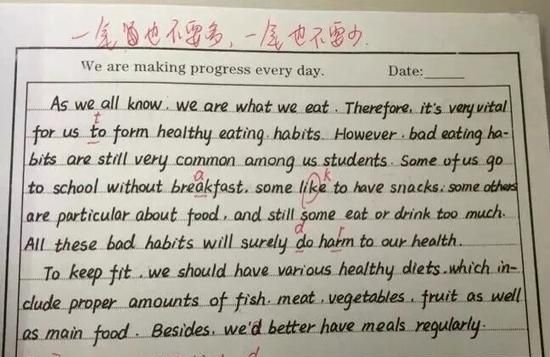 一笔画也不要多，一笔也不要少.
We are making progress every day. Date:
As we all know, we are what we eat. Therefore, it's very vital
t
for us to form healthy eating habits. However, bad eating ha-
bits are still very common among us students. Some of us go
a k
to school without breakfast, some like to have snacks, some others
are particular about food, and still some eat or drink too much.
d r
All these bad habits will surely do harm to our health.
To keep fit, we should have various healthy diets, which in-
clude proper amounts of fish, meat, vegetables, fruit as well
as main food. Besides, we'd better have meals regularly.
d